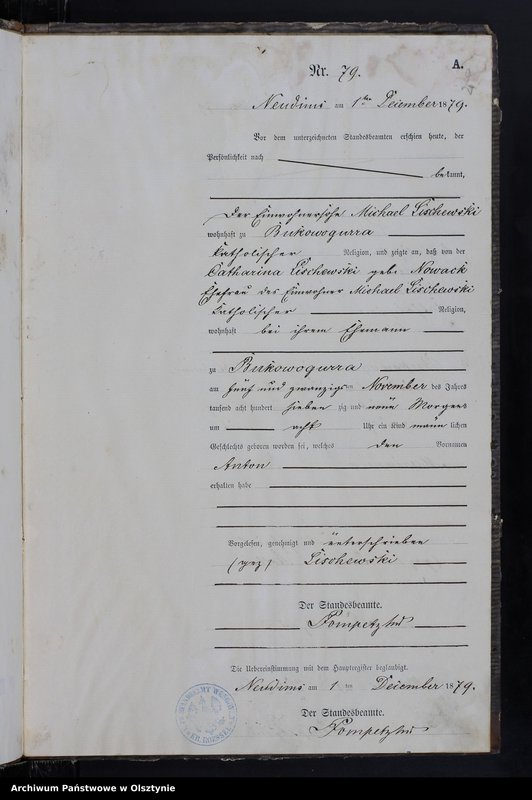 A.
Nr. 79.
Neudims am 1ten Dezember 1879.
Vor dem unterzeichneten Standesbeamten erschien heute, der
Persönlichkeit nach
bekannt,
der Einwohner Michael Lischewski
wohnhaft zu Bukowogurra
katholischer Religion, und zeigte an, daß von der
Catharina Lischewski geb. Nowack
Ehefrau des Einwohner Michael Lischewski
katholischer Religion,
wohnhaft bei ihrem Ehemann
zu Bukowogurra
am fünf und zwanzigs November des Jahres
tausend acht hundert sieben zig und neun Morgens
um acht Uhr ein Kind männ lichen
Geschlechts geboren worden sei, welches den Vornamen
Anton
erhalten habe
Vorgelesen, genehmigt und unterschrieben
(gez) Lischewski
Der Standesbeamte.
Die Uebereinstimmung mit dem Hauptregister beglaubigt.
Neudims am 1 ten Dezember 1879.
Der Standesbeamte.
Archiwum Państwowe w Olsztynie